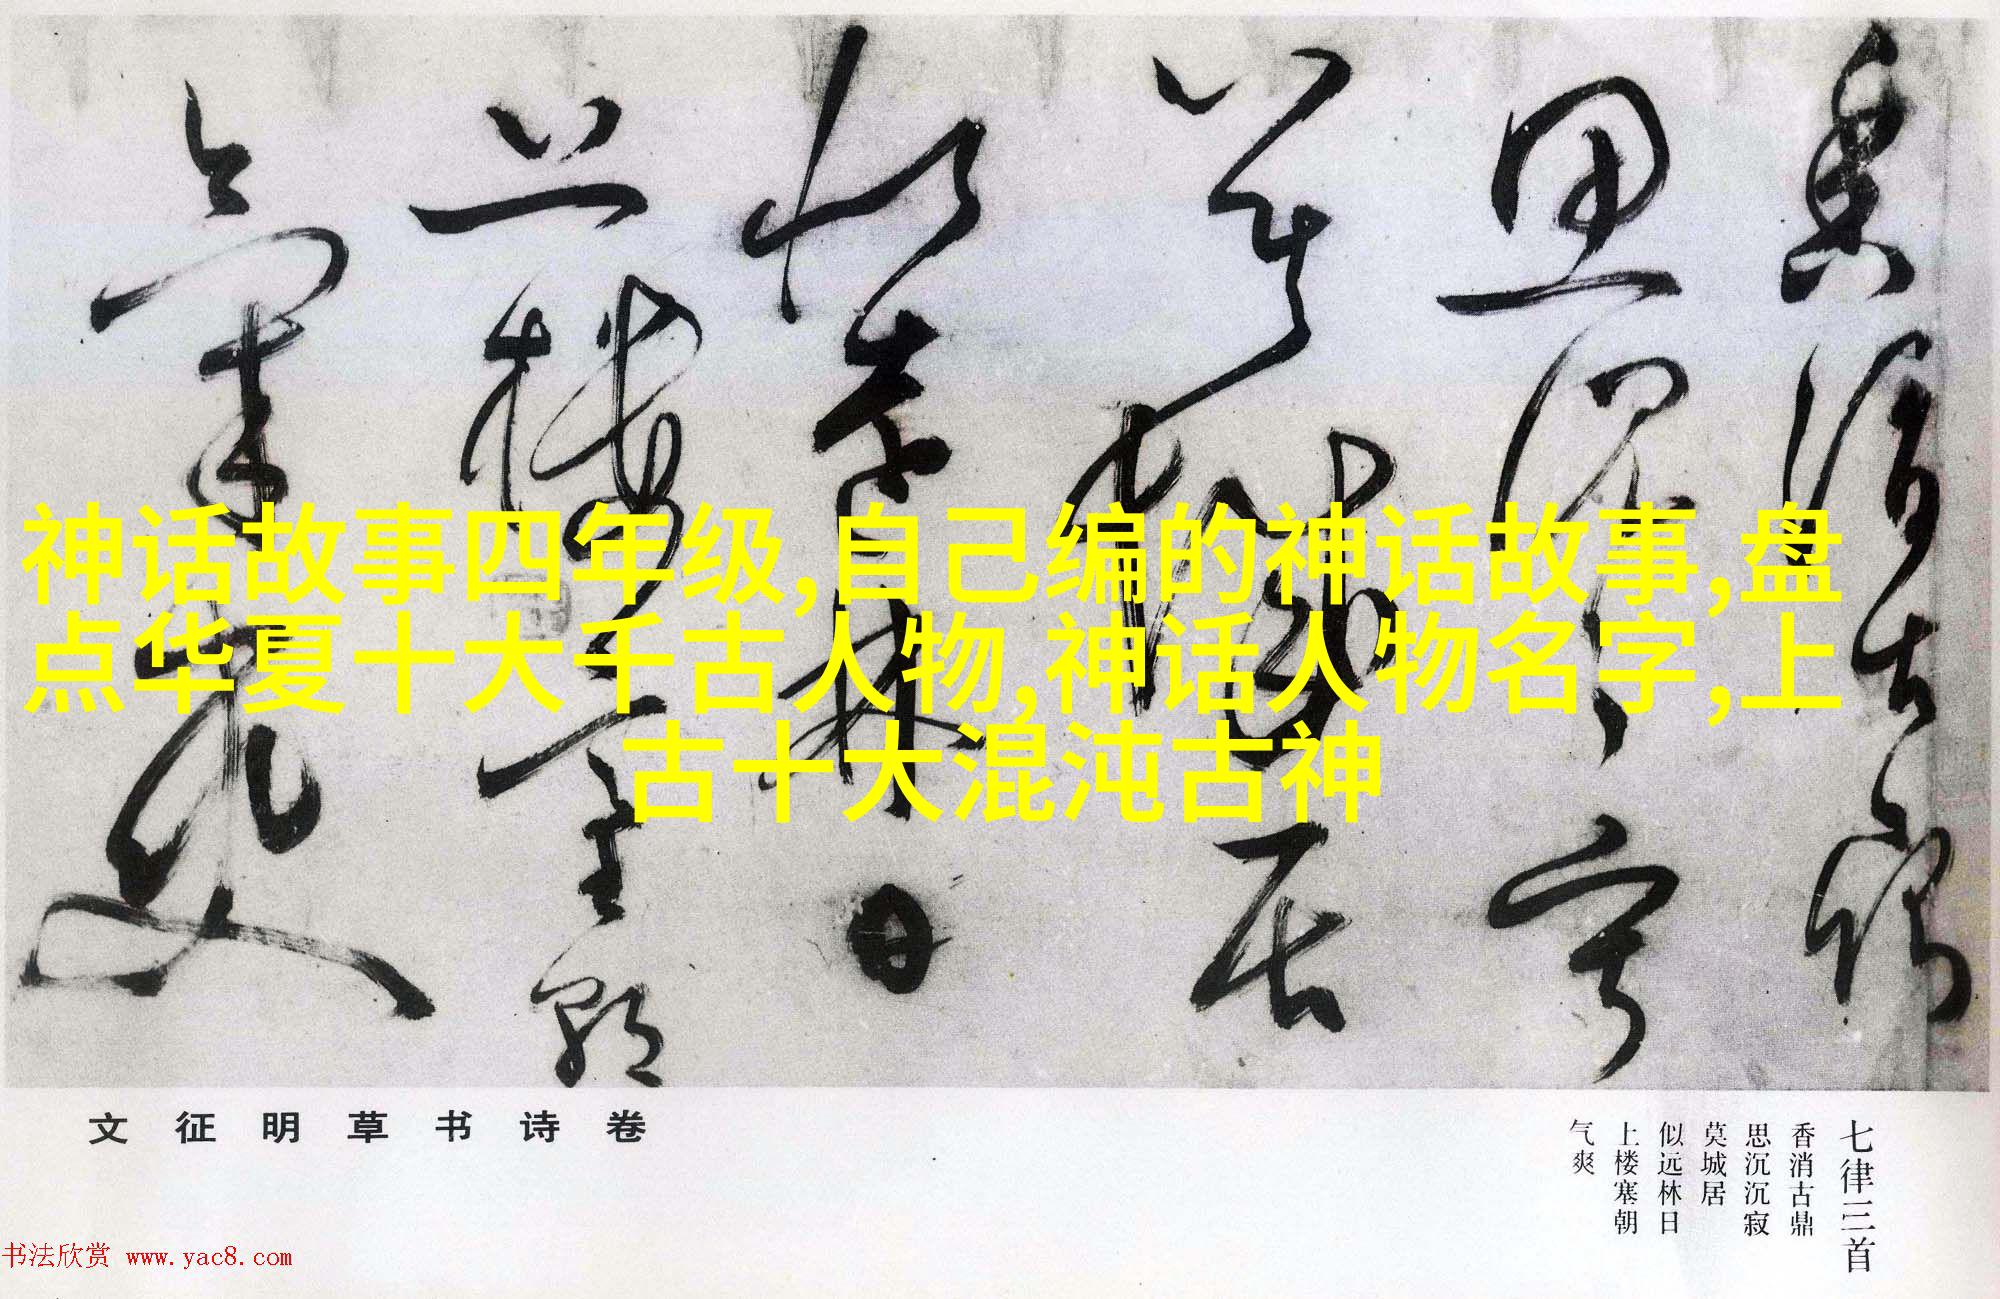 香消古鼎
思沉沉寂
莫城居
似远林日
上楼塞朝
气爽
神话故事四年级,自己编的神话故事,盘
点华夏十大千古人物,神话人物名字,上
古十大混沌古神
文征明草书诗卷
七律三首
香消古鼎
思沉沉寂
莫城居
似远林日
上楼塞朝
气爽
书法欣赏 www.yac8.com